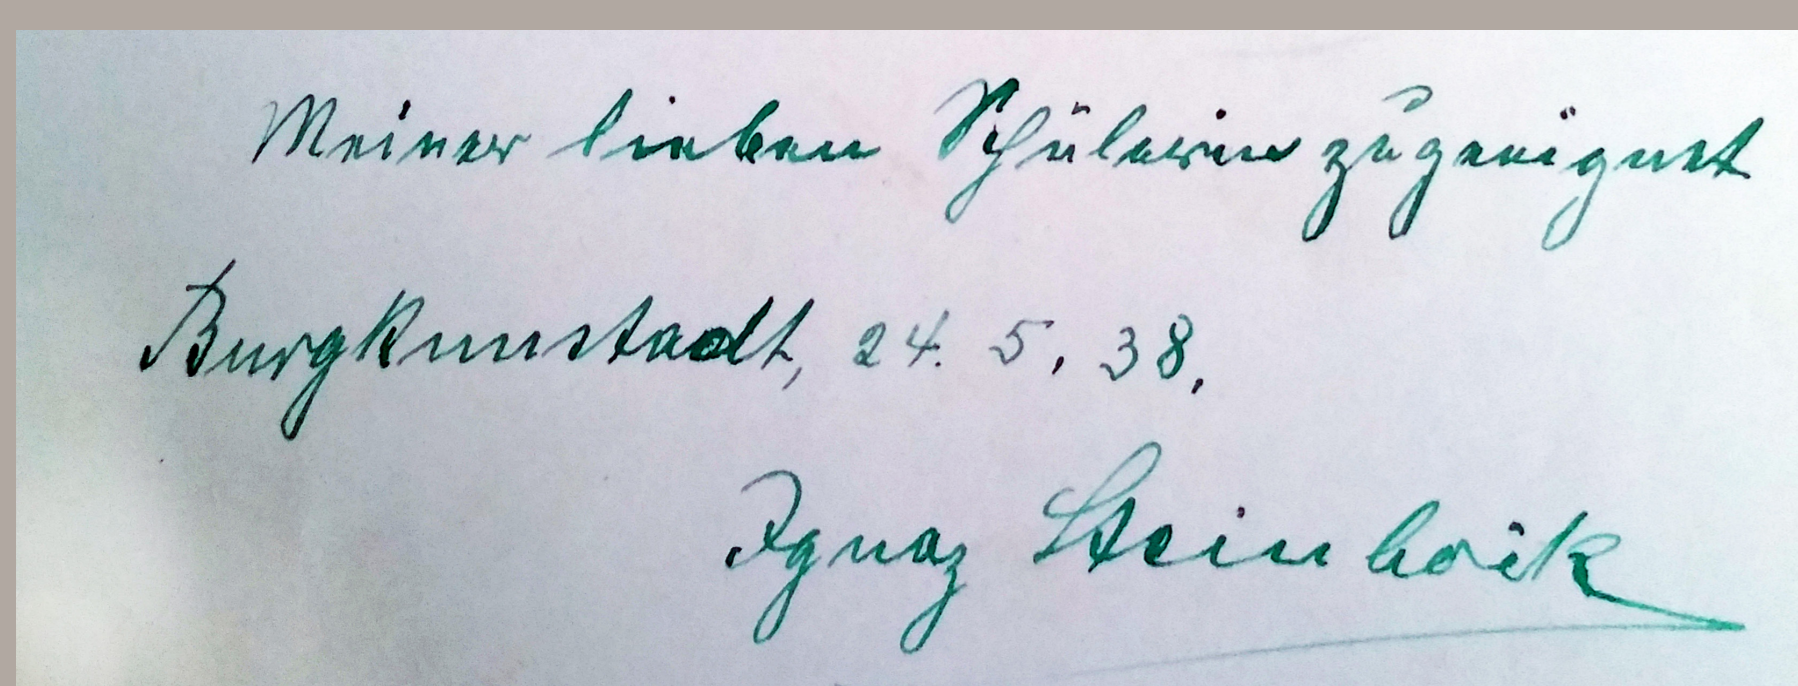 Meiner lieben Schülerin zugeeignet
Burgkunstadt, 24. 5. 38.
Ignaz